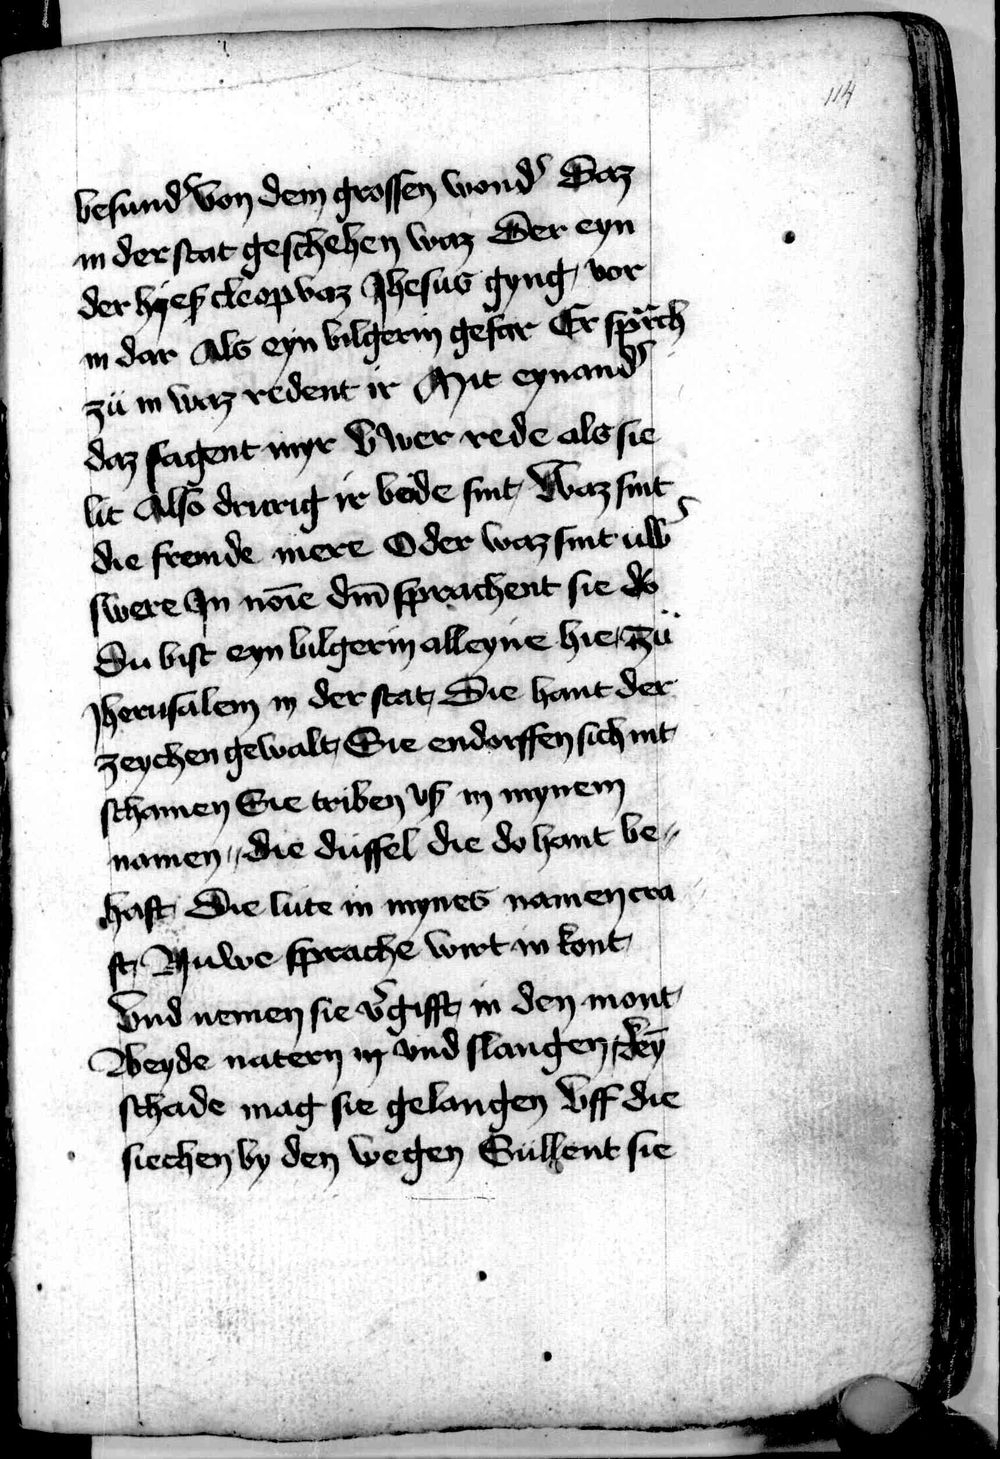 114
besund᷒ von dem grossen wond᷒ Daz
in der stat geschehen waz Der eyn
der hyeß cleopvaz Jhesus gyng vor
in dar Als eyn bilgerin gefar Er sprach
zü in waz redent ir Mit eynand᷒
daz sagent myr Vwer rede als sie
lit Also drurig ir bede sint Waz sint
die fremde mere Oder waz sint uw᷒
swere In no̅ie dm̅ sprachent sie do
Du bist eyn bilgerin alleyne hie zü
Jherusalem in der stat Die hant der
zeychen gewalt Sie endorffen sich nit
schamen Sie triben vß in mynem
namen die düffel die do hant be⸗
haft Die lüte in mynes namen cra
ft Nuwe sprache wirt in kont
Vnd nemen sie v᷒gifft in den mont
Beyde natern in vnd slangen key̅
schade mag sie gelangen Vff die
siechen by den wegen Süllent sie